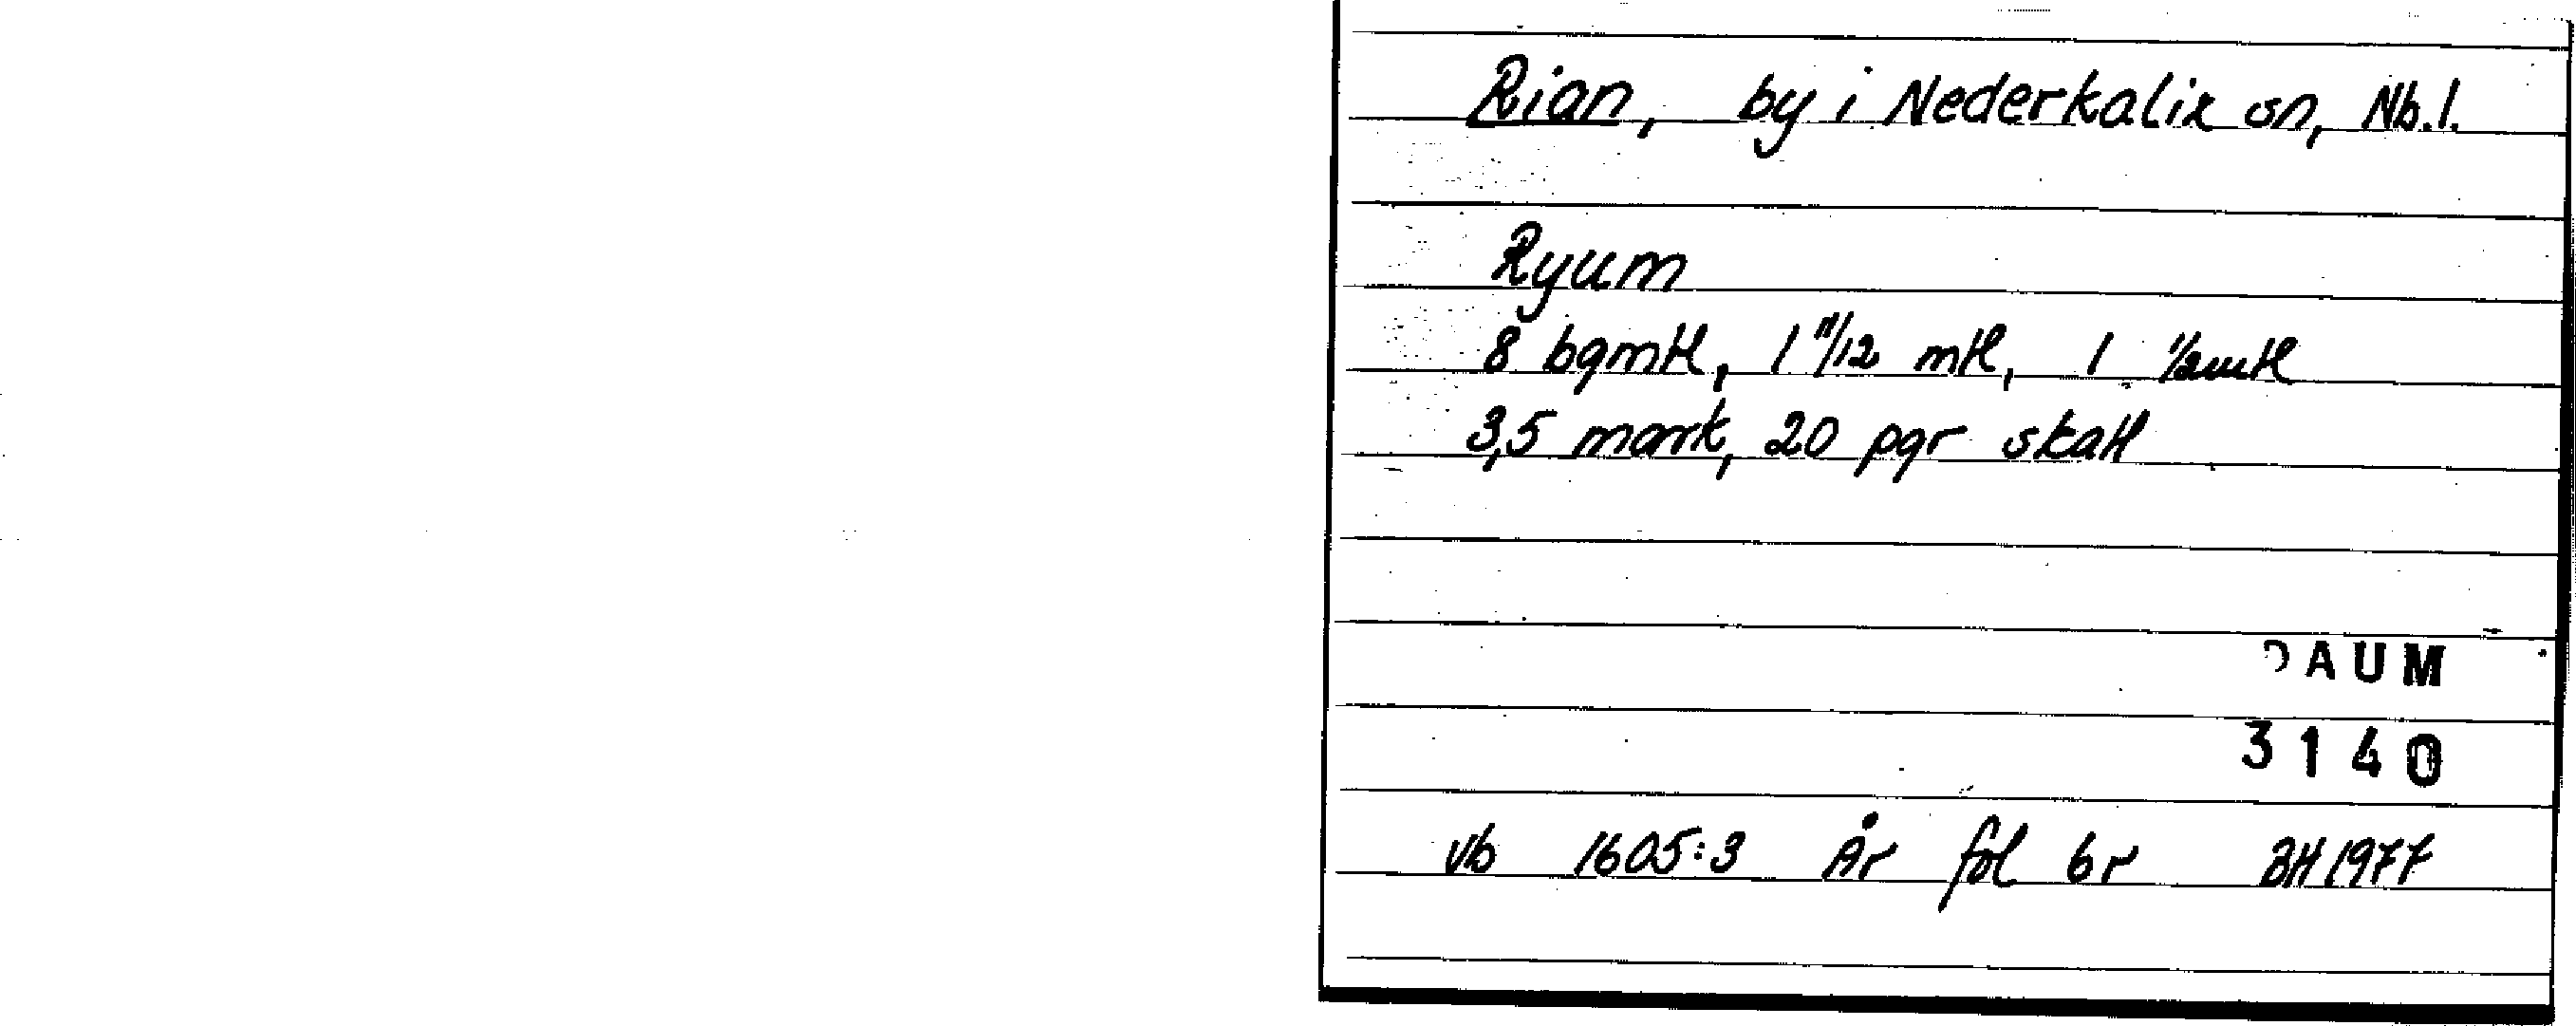 Rian, by i Nederkalix sn, Nb.l.
Ryum
8 bgmtl, 1 11/12 mtl, 1 1/2mtl
3,5 mark, 20 pgr skatt
DAUM
3140
Vb 1605:3 År fol 6r BH 1977